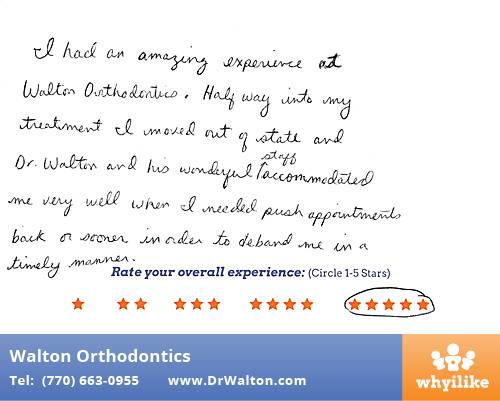 I had an amazing experience at
Walton Orthodontics. Half way into my
treatment I moved out of state and
staff
Dr. Walton and his wonderful ^accommodated
me very well when I needed push appointments
back or sooner in order to deband me in a
timely manner.
Rate your overall experience: (Circle 1-5 Stars)
Walton Orthodontics
Tel: (770) 663-0955 www.DrWalton.com
whyilike